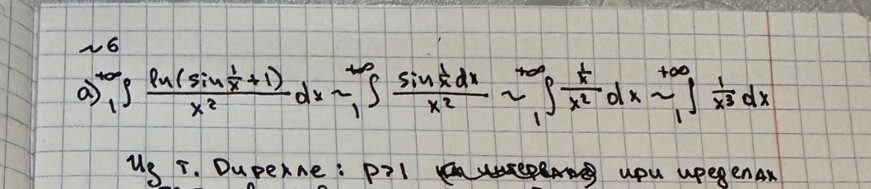 ~6
а) ∫₁^{+∞} ln(sin 1/x + 1)/x² dx ~ ∫₁^{+∞} sin 1/x dx / x² ~ ∫₁^{+∞} (1/x)/x² dx ~ ∫₁^{+∞} 1/x³ dx
Из т. Дирехле: p>1 при пределах